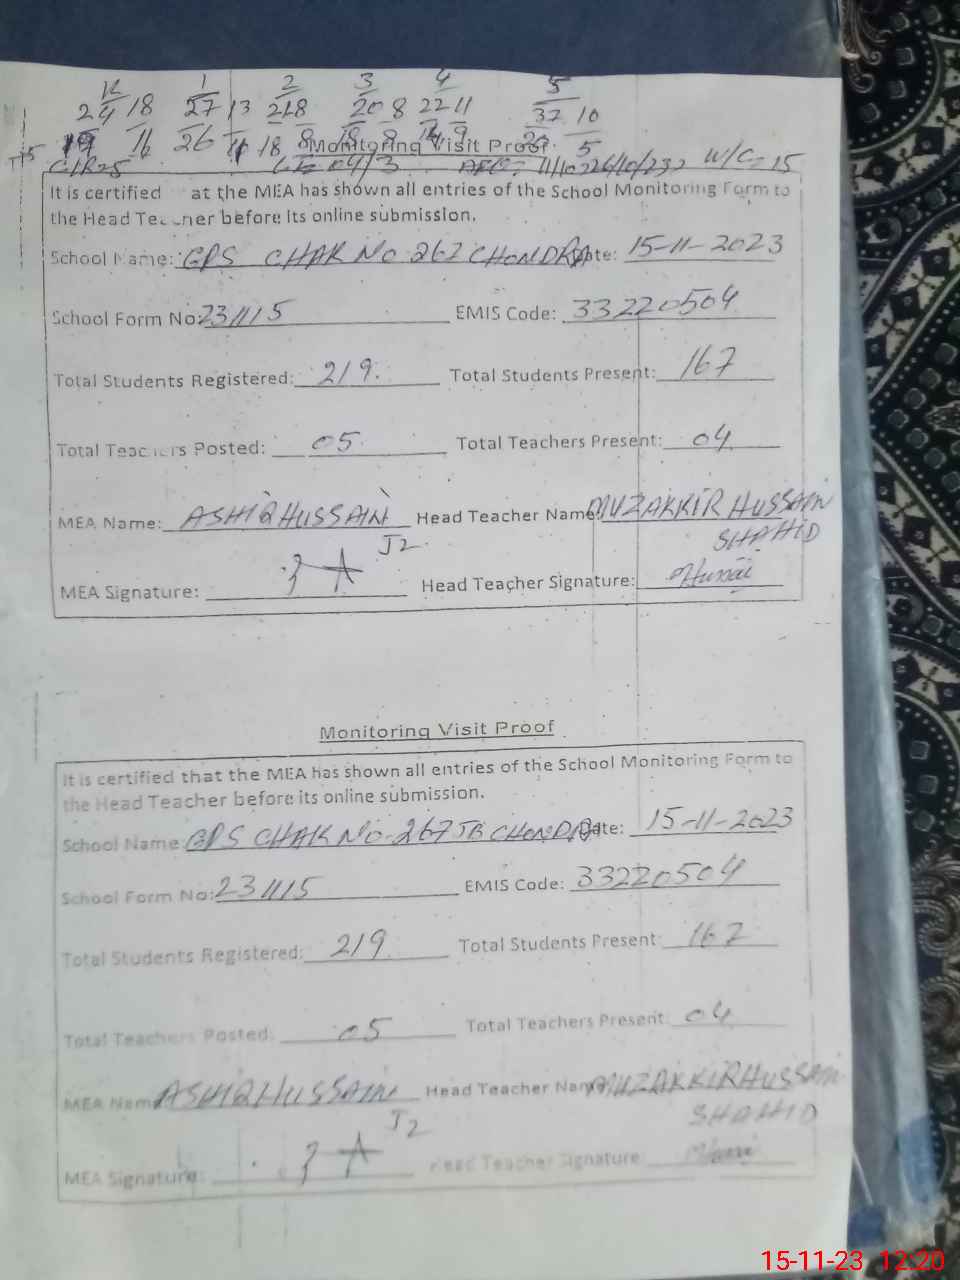 K 1 2 3 4 5
24 18 27 13 21 8 20 8 22 11 32 10
19 16 26 11 18 8 18 8 9 5
Monitoring Visit Proof
C/R=5 W/C=15
It is certified at the MEA has shown all entries of the School Monitoring Form to
the Head Teacher before its online submission.
School Name: GPS CHAK No. 267 CHONDRA Date: 15-11-2023
School Form No: 231115 EMIS Code: 33220504
Total Students Registered: 219. Total Students Present: 167
Total Teachers Posted: 05. Total Teachers Present: 04
MEA Name: ASHIQ HUSSAIN Head Teacher Name: MUZAKKIR HUSSAIN
J2. SHAHID
MEA Signature: Head Teacher Signature:
Monitoring Visit Proof
It is certified that the MEA has shown all entries of the School Monitoring Form to
the Head Teacher before its online submission.
School Name: GPS CHAK No. 267 JB CHONDRA Date: 15-11-2023
School Form No: 231115 EMIS Code: 33220504
Total Students Registered: 219 Total Students Present: 167
Total Teachers Posted: 05 Total Teachers Present: 04
MEA Name: ASHIQ HUSSAIN Head Teacher Name: MUZAKKIR HUSSAIN
J2 SHAHID
MEA Signature: Head Teacher Signature:
15-11-23 12:20